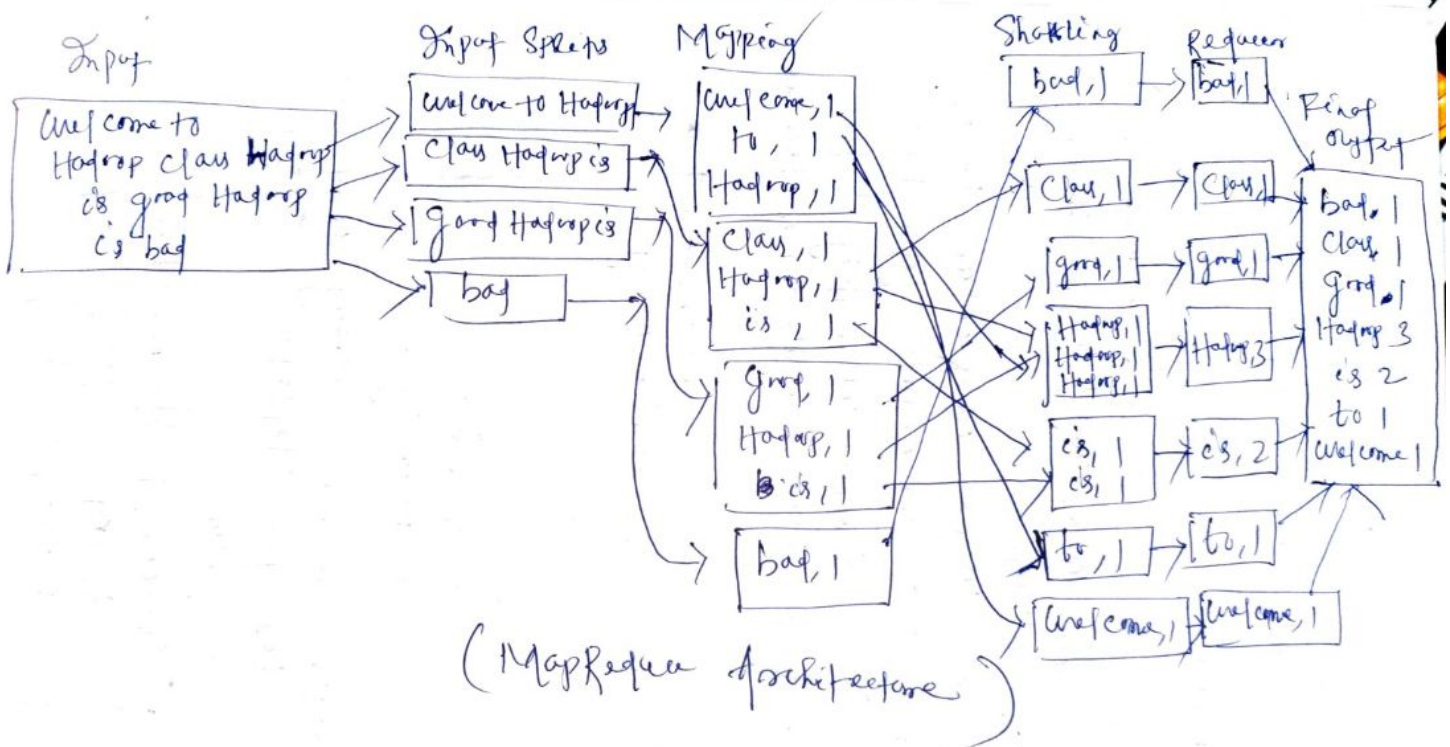 Input
Welcome to
Hadoop class Hadoop
is good Hadoop
is bad
Input Splits
Welcome to Hadoop
Class Hadoop is
Good Hadoop is
bad
Mapping
Welcome, 1
to, 1
Hadoop, 1
Class, 1
Hadoop, 1
is, 1
Good, 1
Hadoop, 1
is, 1
bad, 1
Shuffling
bad, 1
Class, 1
good, 1
Hadoop, 1
Hadoop, 1
Hadoop, 1
is, 1
is, 1
to, 1
Welcome, 1
Reducer
bad, 1
Class, 1
good, 1
Hadoop, 3
is, 2
to, 1
Welcome, 1
Final
Output
bad, 1
Class, 1
good, 1
Hadoop 3
is 2
to 1
Welcome 1
(MapReduce Architecture)